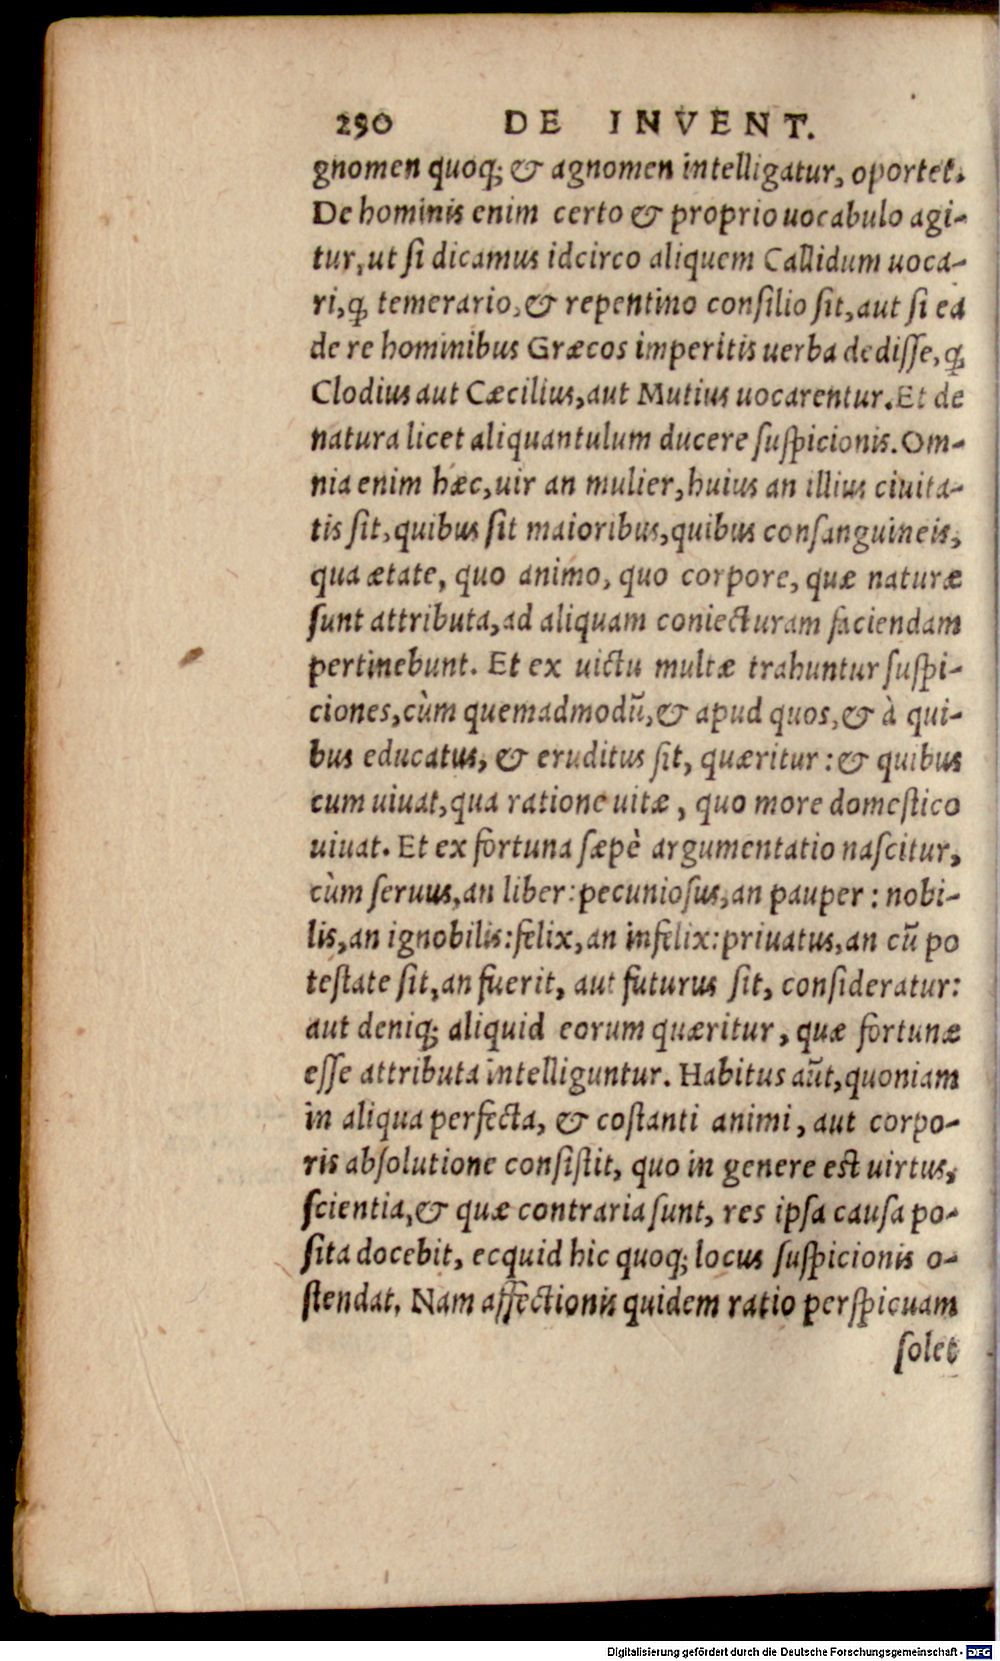 290 DE INVENT.
gnomen quoq; & agnomen intelligatur, oportet.
De hominis enim certo & proprio uocabulo agi-
tur, ut si dicamus idcirco aliquem Callidum uoca-
ri, ꝙ temerario, & repentino consilio sit, aut si ea
de re hominibus Græcos imperitis uerba dedisse, ꝙ
Clodius aut Cæcilius, aut Mutius uocarentur. Et de
natura licet aliquantulum ducere suspicionis. Om-
nia enim hæc, uir an mulier, huius an illius ciuita-
tis sit, quibus sit maioribus, quibus consanguineis,
qua ætate, quo animo, quo corpore, quæ naturæ
sunt attributa, ad aliquam coniecturam faciendam
pertinebunt. Et ex uictu multæ trahuntur suspi-
ciones, cùm quemadmodū, & apud quos, & à qui-
bus educatus, & eruditus sit, quæritur: & quibus
cum uiuat, qua ratione uitæ, quo more domestico
uiuat. Et ex fortuna sæpè argumentatio nascitur,
cùm seruus, an liber: pecuniosus, an pauper: nobi-
lis, an ignobilis: felix, an infelix: priuatus, an cū po
testate sit, an fuerit, aut futurus sit, consideratur:
aut deniq; aliquid eorum quæritur, quæ fortunæ
esse attributa intelliguntur. Habitus aūt, quoniam
in aliqua perfecta, & costanti animi, aut corpo-
ris absolutione consistit, quo in genere est uirtus,
scientia, & quæ contraria sunt, res ipsa causa po-
sita docebit, ecquid hic quoq; locus suspicionis o-
stendat. Nam affectionis quidem ratio perspicuam
solet
Digitalisierung gefördert durch die Deutsche Forschungsgemeinschaft - DFG